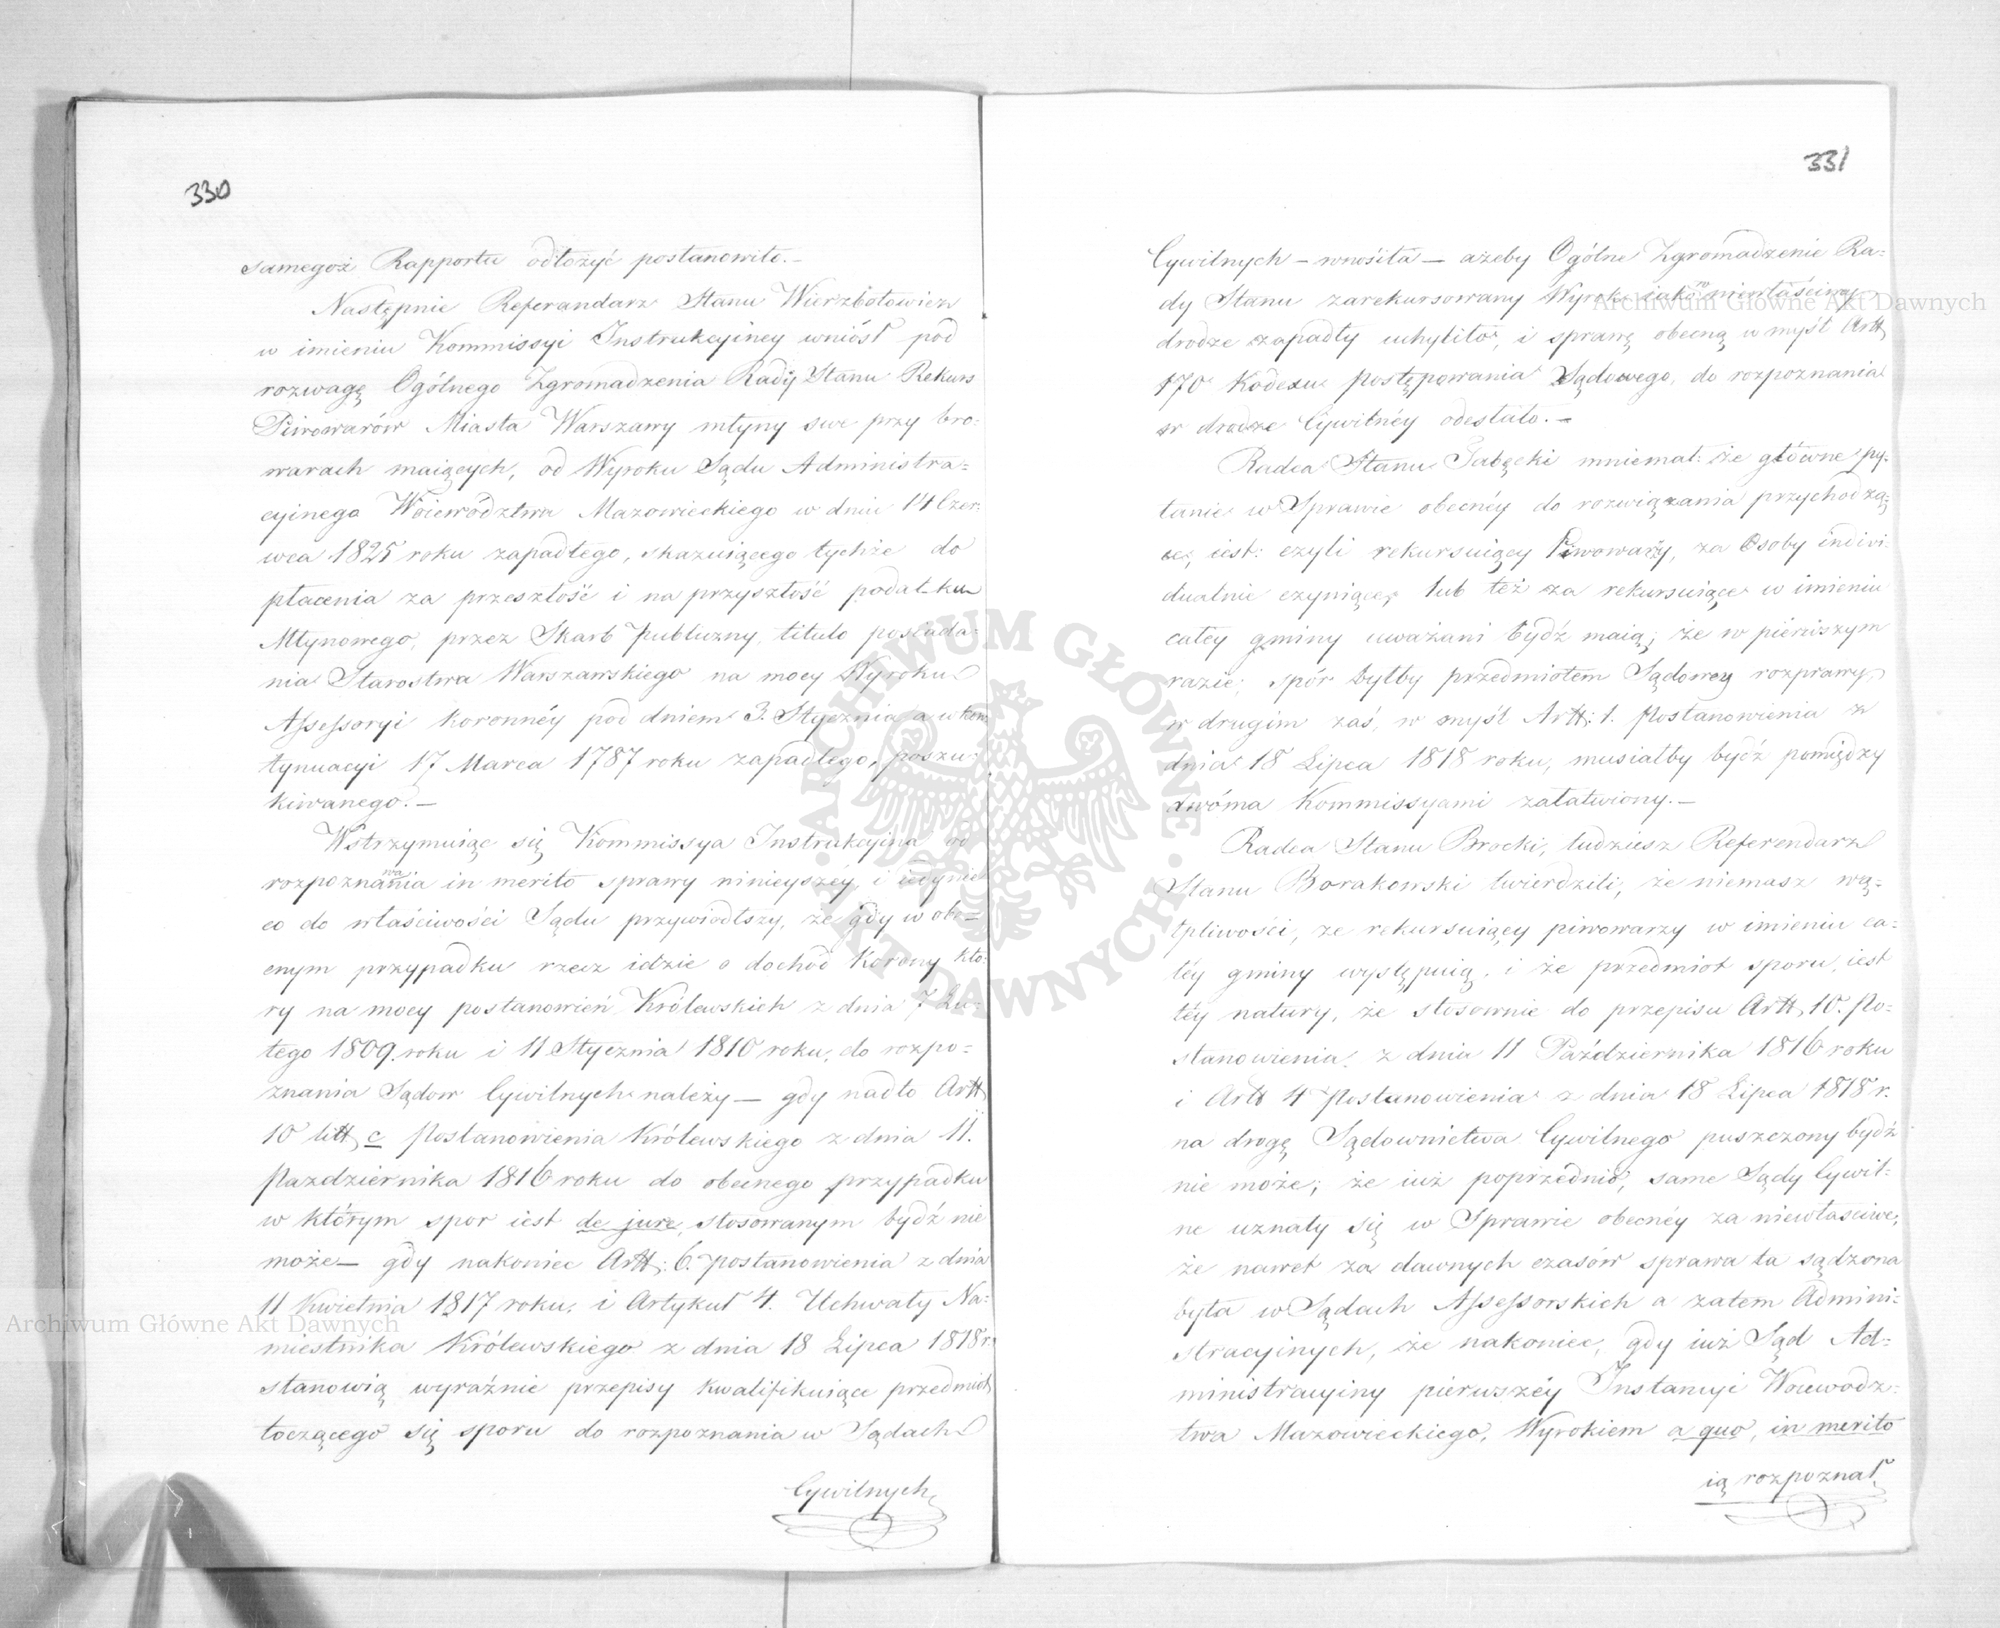 330
samegoż Rapportu odłożyć postanowiło.—
Następnie Referandarz Stanu Wierzbołowicz
w imieniu Kommissyi Instrukcyiney wniósł pod
rozwagę Ogólnego Zgromadzenia Rady Stanu Rekurs
Piwowarów Miasta Warszawy młyny swe przy bro-
warach maiących, od Wyroku Sądu Administra-
cyinego Woiewództwa Mazowieckiego w dniu 14 Czer-
wca 1825 roku zapadłego, skazuiącego tychże do
płacenia za przeszłość i na przyszłość podatku
Młynowego, przez Skarb publiczny, titulo posiada-
nia Starostwa Warszawskiego na mocy Wyroku
Assessoryi Koronnéy pod dniem 3. Stycznia a w kon-
tynuacyi 17 Marca 1787 roku zapadłego, poszu-
kiwanego.—
Wstrzymuiąc się Kommissya Instrukcyina od
rozpoznawania in merito sprawy ninieyszéy, i iedynie
co do właściwości Sądu przywiodłszy, że gdy w obe-
cnym przypadku rzecz idzie o dochód Korony któ-
ry na mocy postanowień Królewskich z dnia 7 Lu-
tego 1809. roku i 11 Stycznia 1810 roku, do rozpo-
znania Sądow Cywilnych należy — gdy nadto Artt
10 litt c Postanowienia Królewskiego z dnia 11.
Pazdziernika 1816 roku do obecnego przypadku
w którym spor iest de jure, stosowanym bydź nie
może — gdy nakoniec Artt: 6. postanowienia z dnia
11 Kwietnia 1817 roku, i Artykuł 4. Uchwały Na-
miestnika Królewskiego z dnia 18 Lipca 1818 r.
stanowią wyraźnie przepisy kwalifikuiące przedmiot
toczącego się sporu do rozpoznania w Sądach
Cywilnych
331
Cywilnych — wnósiła — ażeby Ogólne Zgromadzenie Ra-
dy Stanu zarekursowany Wyrok iako w niewłaściwey
drodze zapadły uchyliło, i sprawę obecną w myśl Artt
170 Kodexu Postępowania Sądowego, do rozpoznania
w drodze Cywilnéy odesłało.—
Radca Stanu Gałęcki mniemał: że główne py-
tanie w Sprawie obecnéy do rozwiązania przychodzą-
ce, iest: czyli rekursuiący Piwowarzy, za Osoby indivi-
dualnie czyniące, lub też za rekursuiące w imieniu
całey gminy uważani bydź maią; że w pierwszym
razie, spór byłby przedmiotem Sądowey rozprawy,
w drugim zaś, w myśl Artt: 1. Postanowienia z
dnia 18 Lipca 1818 roku, musiałby bydź pomiędzy
dwóma Kommissyami załatwiony.—
Radca Stanu Brocki, tudziesz Referendarz
Stanu Borakowski twierdzili, że niemasz wą-
tpliwości, że rekursuiący piwowarzy w imieniu ca-
łéy gminy występuią, i że przedmiot sporu, iest
téy natury, że stosownie do przepisu Artt, 10. Po-
stanowienia z dnia 11 Października 1816 roku
i Artt 4 Postanowienia z dnia 18 Lipca 1818 r.
na drogę Sądownictwa Cywilnego puszczony bydź
nie może; że iuż poprzednio, same Sądy Cywil-
ne uznały się w Sprawie obecnéy za niewłaściwe;
że nawet za dawnych czasów sprawa ta sądzona
była w Sądach Assessorskich a zatem Admini-
stracyinych, że nakoniec, gdy iuż Sąd Ad-
ministracyiny pierwszéy Instancyi Woiewódz-
twa Mazowieckiego, Wyrokiem a quo, in merito
ią rozpoznał
Archiwum Główne Akt Dawnych
Archiwum Główne Akt Dawnych
ARCHIWUM GŁÓWNE
AKT DAWNYCH